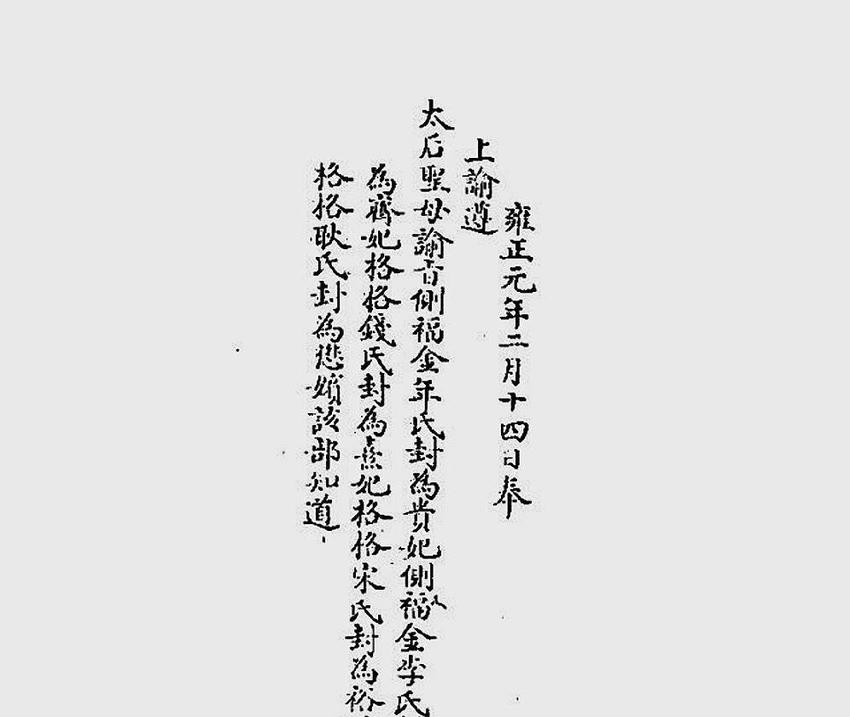 雍正元年二月十四日奉
上諭遵
太后聖母諭旨側福金年氏封為貴妃側福金李氏
為齊妃格格錢氏封為熹妃格格宋氏封為裕
格格耿氏封為懋嬪該部知道